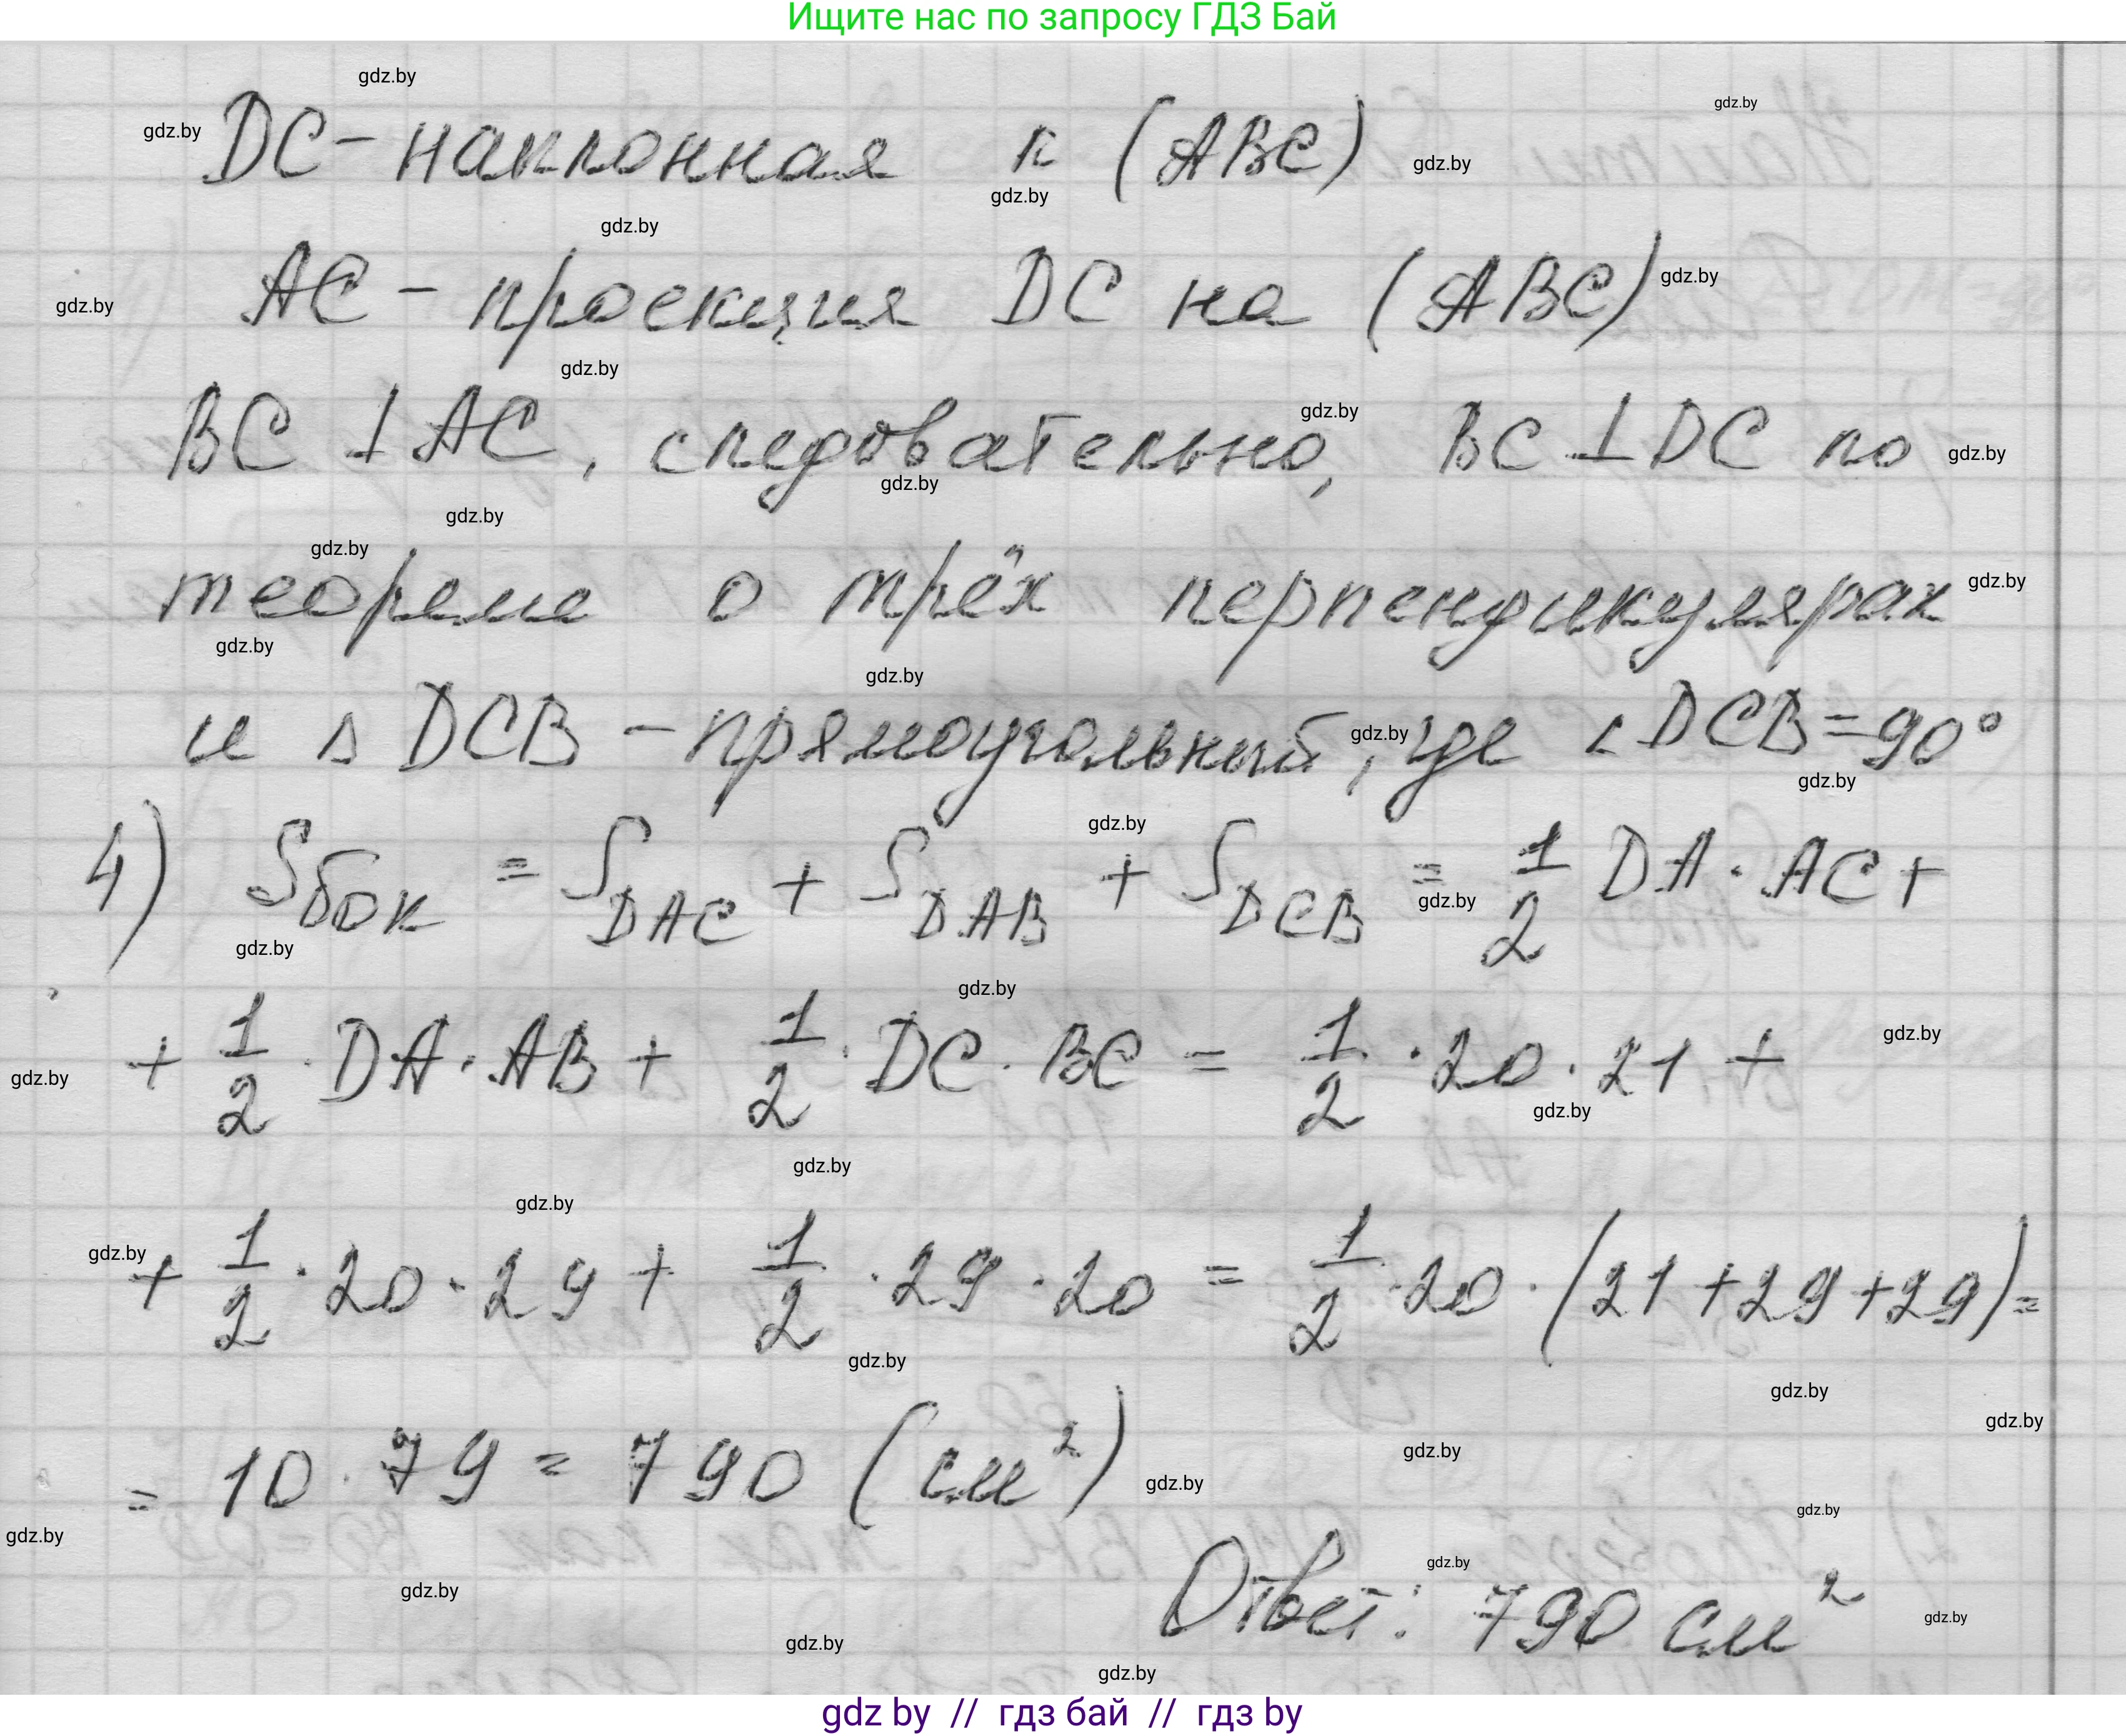 Ищите нас по запросу ГДЗ Бай
gdz.by
gdz.by
gdz.by
DC - наклонная к (ABC)
gdz.by
gdz.by
gdz.by
AC - проекция DC на (ABC)
gdz.by
gdz.by
gdz.by
BC ⊥ AC, следовательно, BC ⊥ DC по
gdz.by
gdz.by
gdz.by
gdz.by
gdz.by
теореме о трёх перпендикулярах
gdz.by
gdz.by
gdz.by
и Δ DCB - прямоугольный, где ∠DCB = 90°
gdz.by
gdz.by
gdz.by
4) Sбок = S DAC + S DAB + S DCB = 1/2 DA · AC +
gdz.by
gdz.by
gdz.by
+ 1/2 · DA · AB + 1/2 · DC · BC = 1/2 · 20 · 21 +
gdz.by
gdz.by
gdz.by
gdz.by
gdz.by
+ 1/2 · 20 · 29 + 1/2 · 29 · 20 = 1/2 · 20 · (21 + 29 + 29) =
gdz.by
gdz.by
gdz.by
gdz.by
gdz.by
= 10 · 79 = 790 (см²)
gdz.by
gdz.by
gdz.by
gdz.by
Ответ: 790 см²
gdz.by
gdz.by
gdz.by
gdz.by
gdz by // гдз бай // гдз by